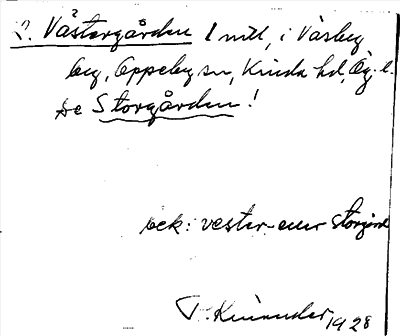 2. Västergården 1 mtl, i Väsby
by, Oppeby sn, Kinda hd, Ög. l.
se Storgården!
eck: vester- eller storgård
T. Kinander 1928